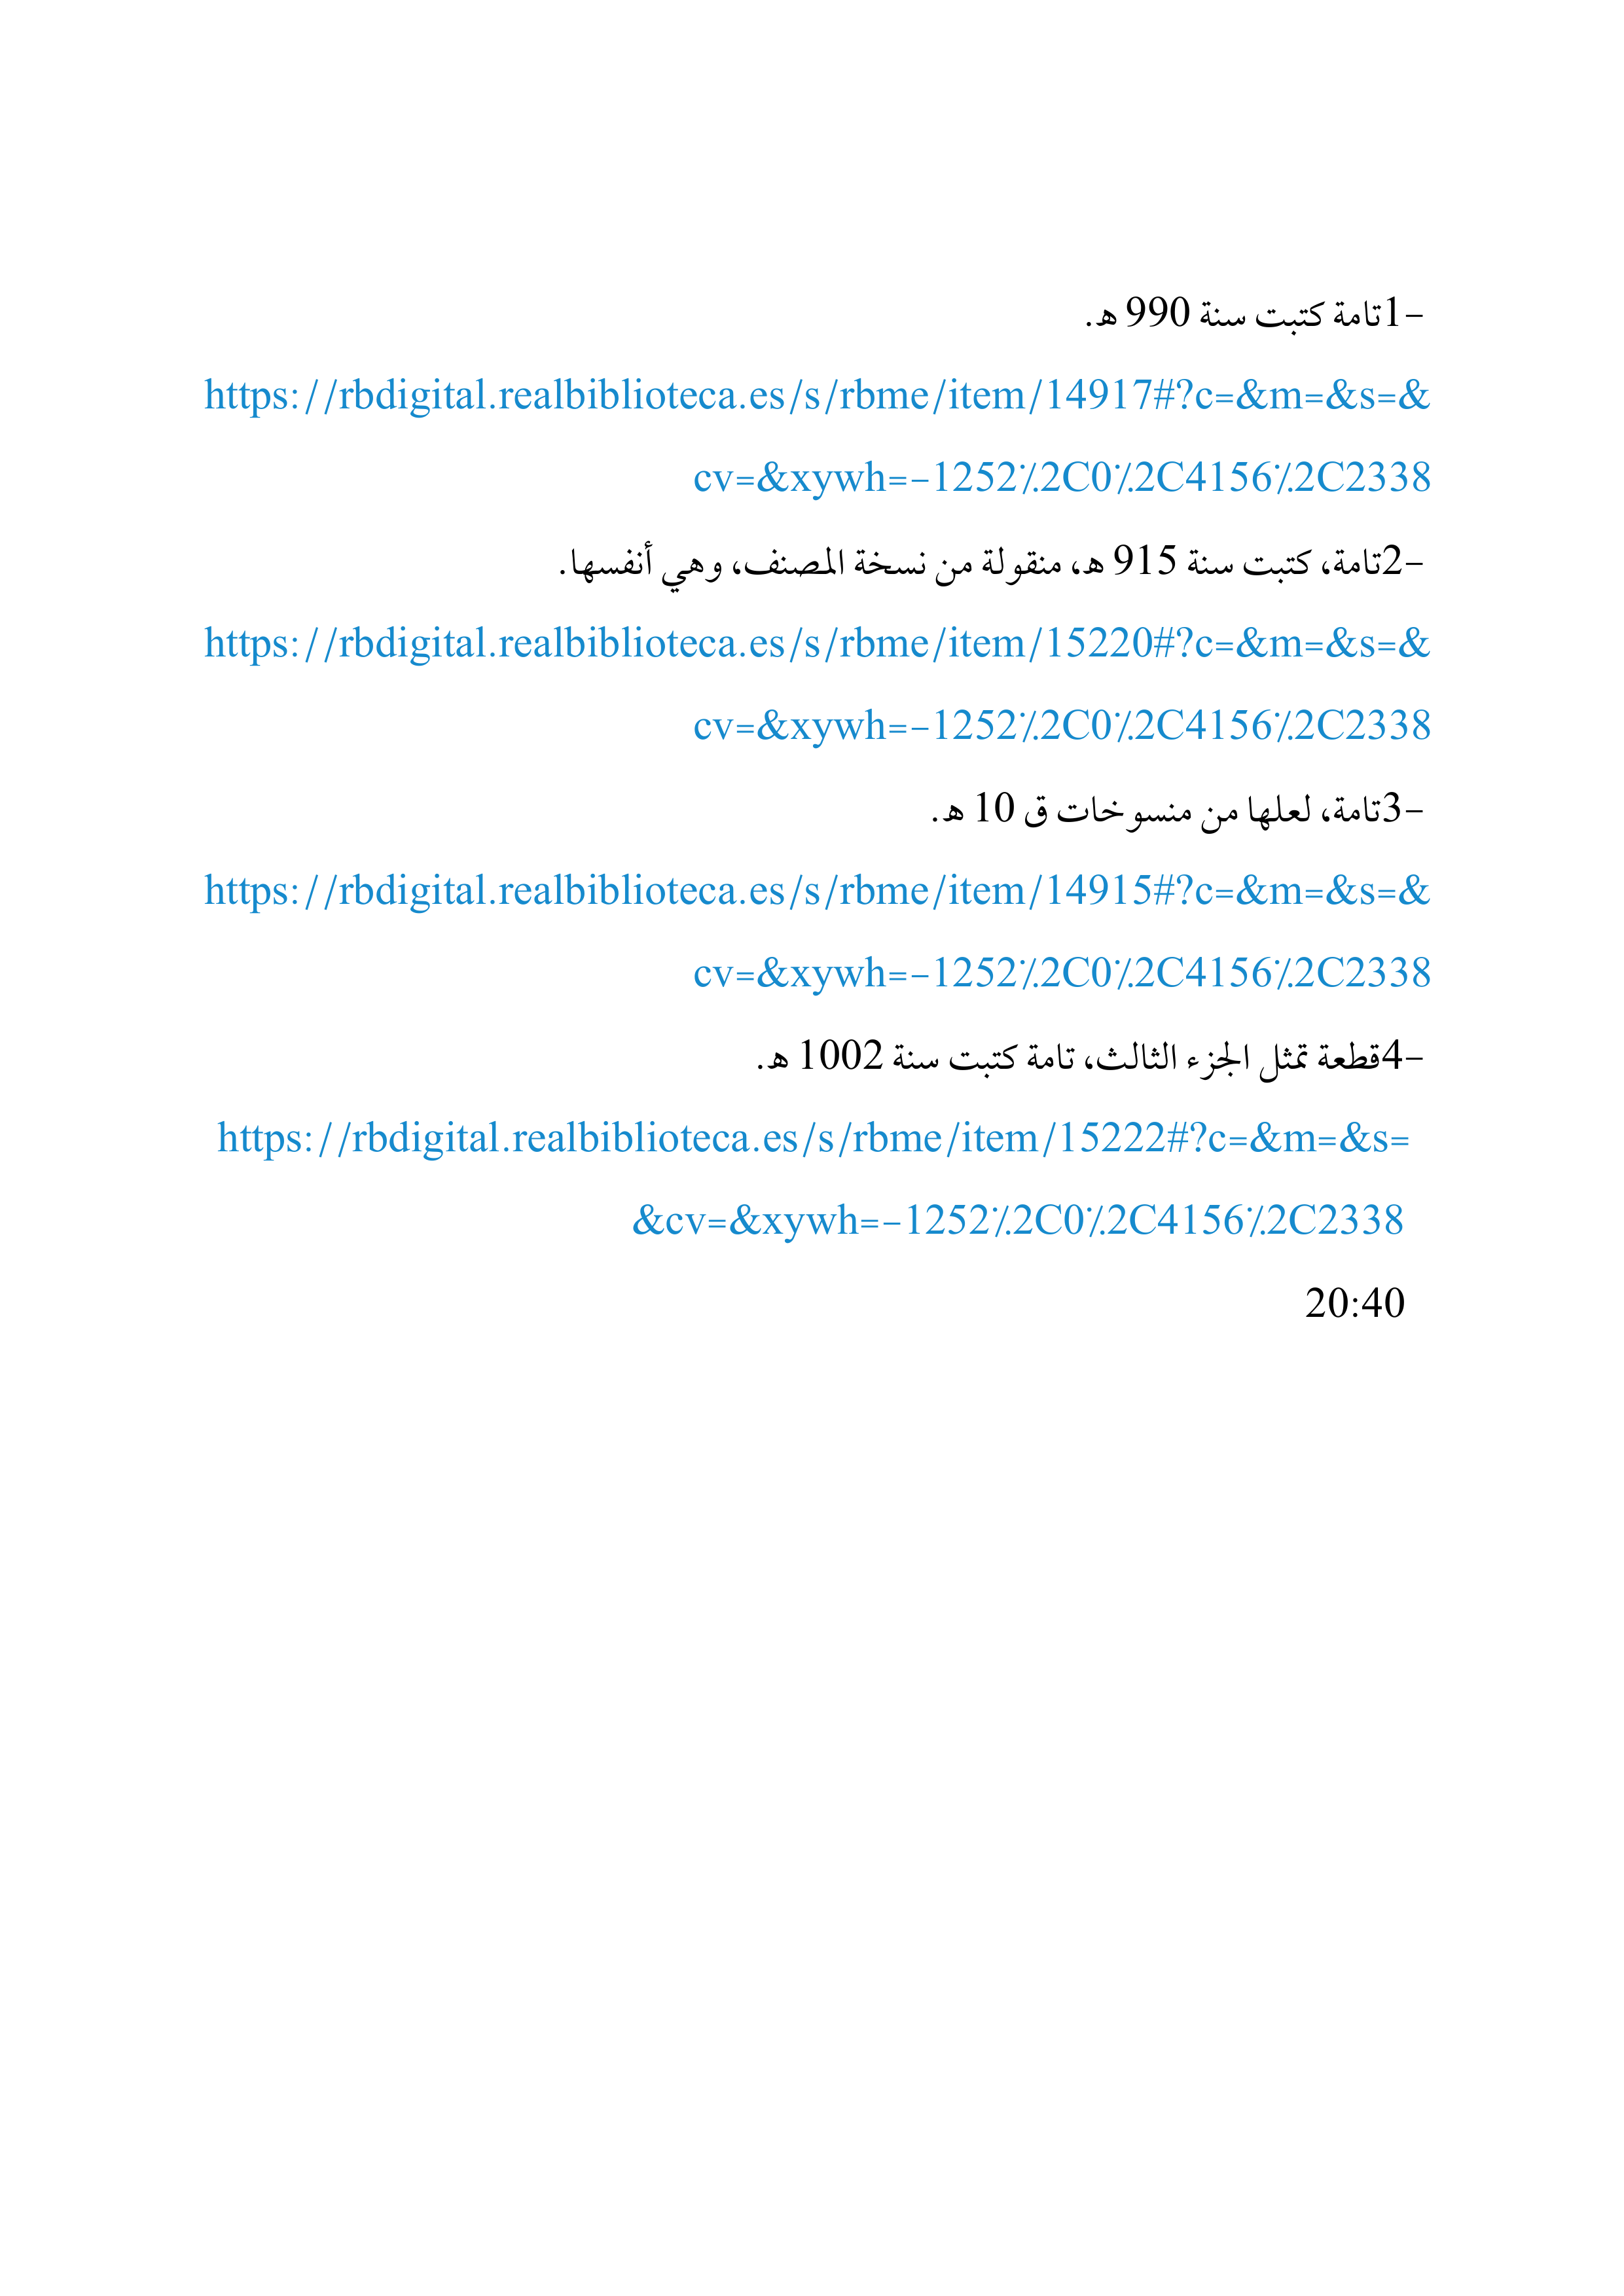 -1تامة كتبت سنة 990 ه.
https://rbdigital.realbiblioteca.es/s/rbme/item/14917#?c=&m=&s=&
cv=&xywh=-1252%2C0%2C4156%2C2338
-2تامة، كتبت سنة 915 ه، منقولة من نسخة المصنف، وهي أنفسها.
https://rbdigital.realbiblioteca.es/s/rbme/item/15220#?c=&m=&s=&
cv=&xywh=-1252%2C0%2C4156%2C2338
-3تامة، لعلها من منسوخات ق 10 ه.
https://rbdigital.realbiblioteca.es/s/rbme/item/14915#?c=&m=&s=&
cv=&xywh=-1252%2C0%2C4156%2C2338
-4قطعة تمثل الجزء الثالث، تامة كتبت سنة 1002 ه.
https://rbdigital.realbiblioteca.es/s/rbme/item/15222#?c=&m=&s=
&cv=&xywh=-1252%2C0%2C4156%2C2338
20:40